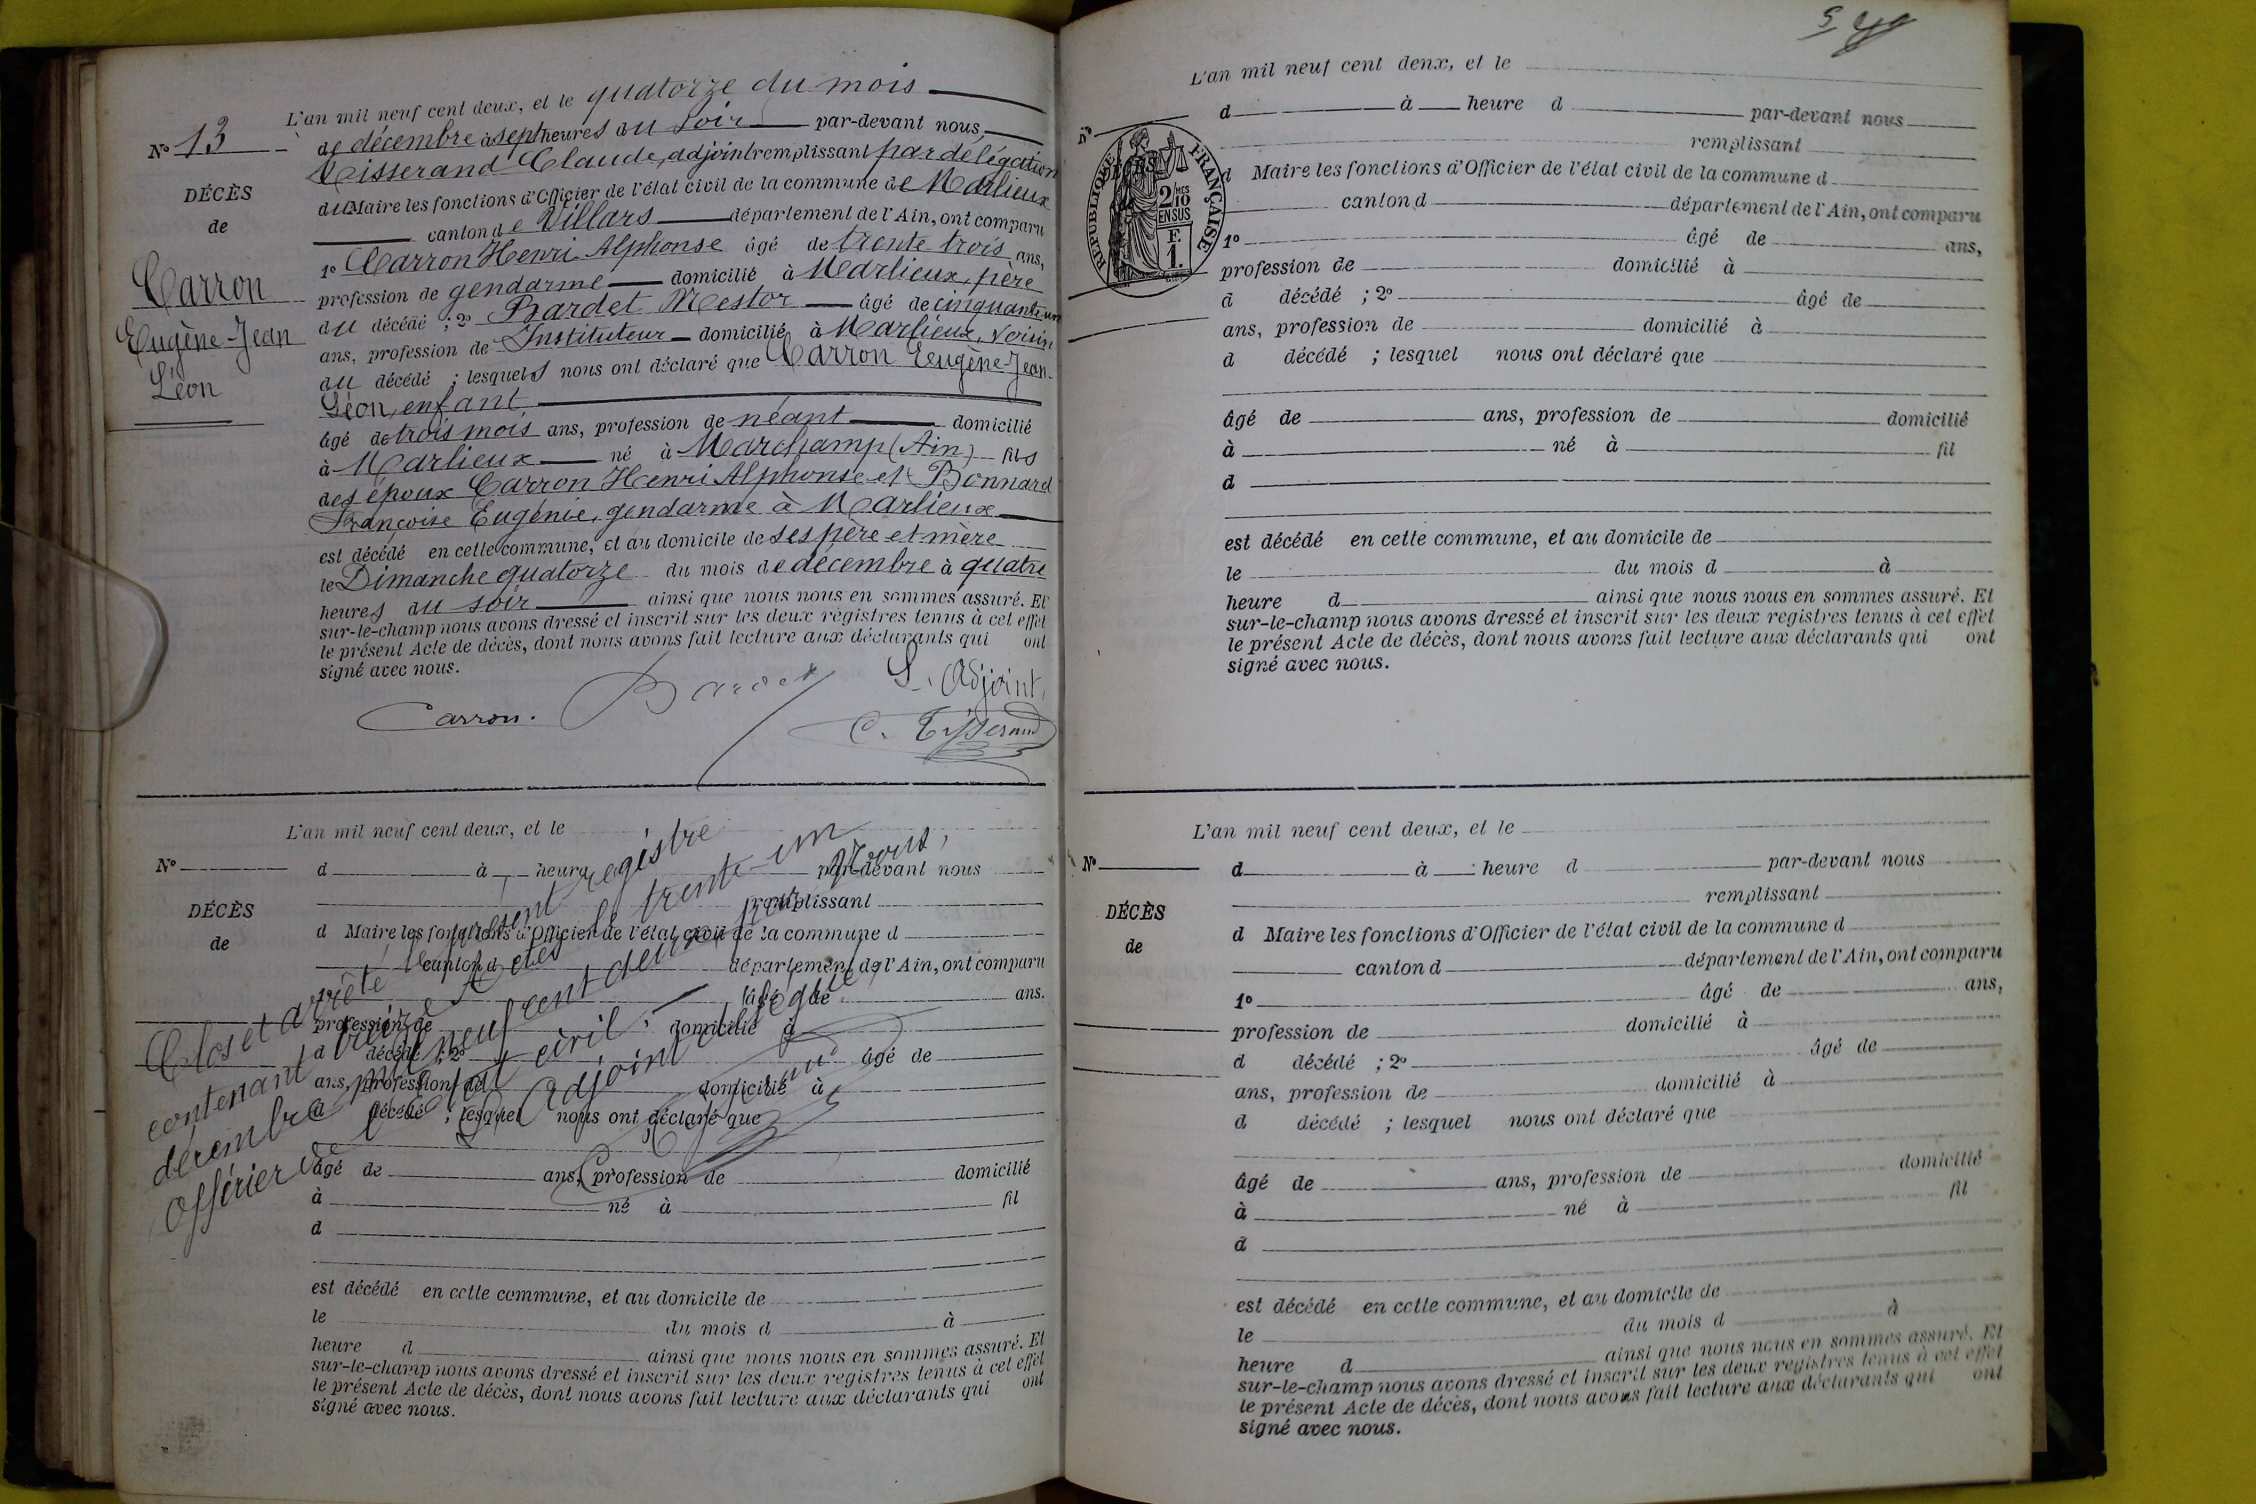 L'an mil neuf cent deux, et le quatorze du mois
N° 13
de décembre à sept heures du soir par-devant nous,
Tisserand Claude, adjoint remplissant par délégation
DÉCÈS
du Maire les fonctions d'Officier de l'état civil de la commune de Marlieux
de
canton de Villars département de l'Ain, ont comparu
1° Carron Henri Alphonse âgé de trente trois ans,
Carron
profession de gendarme domicilié à Marlieux, père
Eugène-Jean
du décédé ; 2° Bardet Nestor âgé de cinquante un
ans, profession de Instituteur domicilié à Marlieux, voisin
Léon
du décédé ; lesquels nous ont déclaré que Carron Eugène-Jean-
Léon, enfant
âgé de trois mois ans, profession de néant domicilié
à Marlieux né à Marchamp (Ain) fils
des époux Carron Henri Alphonse et Bonnard
Françoise Eugénie, gendarme à Marlieux
est décédé en cette commune, et au domicile de ses père et mère
le Dimanche quatorze du mois de décembre à quatre
heures du soir ainsi que nous nous en sommes assuré. Et
sur-le-champ nous avons dressé et inscrit sur les deux registres tenus à cet effet
le présent Acte de décès, dont nous avons fait lecture aux déclarants qui ont
signé avec nous.
Carron. Bardet L'Adjoint,
C. Tisserand
L'an mil neuf cent deux, et le
N° d à heure par-devant nous
remplissant
DÉCÈS
d Maire les fonctions d'Officier de l'état civil de la commune d
de
canton d département de l'Ain, ont comparu
1° âgé de ans.
profession de domicilié à
d décédé ; 2° âgé de
ans, profession de domicilié à
d décédé ; lesquel nous ont déclaré que
Clos et arrêté le présent registre
contenant treize actes le trente-un
décembre mil neuf cent deux par Nous,
Officier de l'état civil,
L'Adjoint délégué,
C. Tisserand
âgé de ans, profession de domicilié
à né à fil
d
est décédé en cette commune, et au domicile de
le du mois d à
heure d ainsi que nous nous en sommes assuré. Et
sur-le-champ nous avons dressé et inscrit sur les deux registres tenus à cet effet
le présent Acte de décès, dont nous avons fait lecture aux déclarants qui ont
signé avec nous.
L'an mil neuf cent deux, et le
N°
d à heure d par-devant nous
remplissant
RÉPUBLIQUE FRANÇAISE
2/10 MES
EN SUS
F.
1.
d Maire les fonctions d'Officier de l'état civil de la commune d
canton d département de l'Ain, ont comparu
1° âgé de ans,
profession de domicilié à
d décédé ; 2° âgé de
ans, profession de domicilié à
d décédé ; lesquel nous ont déclaré que
âgé de ans, profession de domicilié
à né à fil
d
est décédé en cette commune, et au domicile de
le du mois d à
heure d ainsi que nous nous en sommes assuré. Et
sur-le-champ nous avons dressé et inscrit sur les deux registres tenus à cet effet
le présent Acte de décès, dont nous avons fait lecture aux déclarants qui ont
signé avec nous.
L'an mil neuf cent deux, et le
N°
d à heure d par-devant nous
remplissant
DÉCÈS
d Maire les fonctions d'Officier de l'état civil de la commune d
de
canton d département de l'Ain, ont comparu
1° âgé de ans,
profession de domicilié à
d décédé ; 2° âgé de
ans, profession de domicilié à
d décédé ; lesquel nous ont déclaré que
âgé de ans, profession de domicilié
à né à fil
d
est décédé en cette commune, et au domicile de
le du mois d à
heure d ainsi que nous nous en sommes assuré. Et
sur-le-champ nous avons dressé et inscrit sur les deux registres tenus à cet effet
le présent Acte de décès, dont nous avons fait lecture aux déclarants qui ont
signé avec nous.